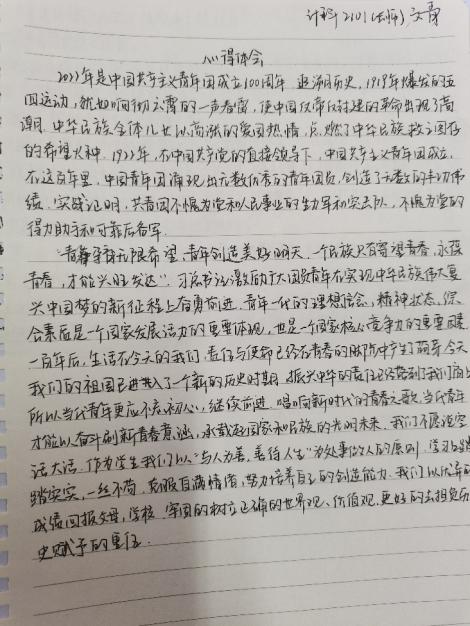 计科2101(法师) 文勇
心得体会
2022年是中国共产主义青年团成立100周年 追溯历史,1919年爆发的五
四运动,犹如响彻云霄的一声春雷,使中国反帝反封建的革命出现了高
潮.中华民族全体儿女以高涨的爱国热情,点燃了中华民族救亡图存
的希望火种.1922年,在中国共产党的直接领导下,中国共产主义青年团成立,
在这百年里,中国青年团涌现出无数优秀的青年团员,创造了无数的丰功伟
绩.实践证明,共青团不愧为党和人民事业的生力军和突击队,不愧为党的
得力助手和可靠后备军.
"青春孕育无限希望,青年创造美好明天,一个民族只有寄望青春,永葆
青春,才能兴旺发达".习总书记激励广大团员青年在实现中华民族伟大复
兴中国梦的新征程上奋勇前进.青年一代的理想信念,精神状态,综
合素质是一个国家发展活力的重要体现,也是一个国家核心竞争力的重要因素.
一百年后,生活在今天的我们,责任与使命已经在青春的脚印中产生了萌芽.今天
我们的祖国已进入了一个新的历史时期,振兴中华的责任已经落到了我们肩上
所以当代青年更应不忘初心,继续前进.唱响新时代的青春之歌,当代青年
才能以奋斗刷新青春意涵,承载起国家和民族的光明未来.我们不愿说空
话大话.作为学生我们以"与人为善,善待人生"为处事做人的原则.学习上踏
踏实实,一丝不苟,克服自满情绪,努力培养自己的创造能力.我们以优异的
成绩回报父母,学校.牢固的树立正确的世界观、价值观,更好的去担负历
史赋予的重任.